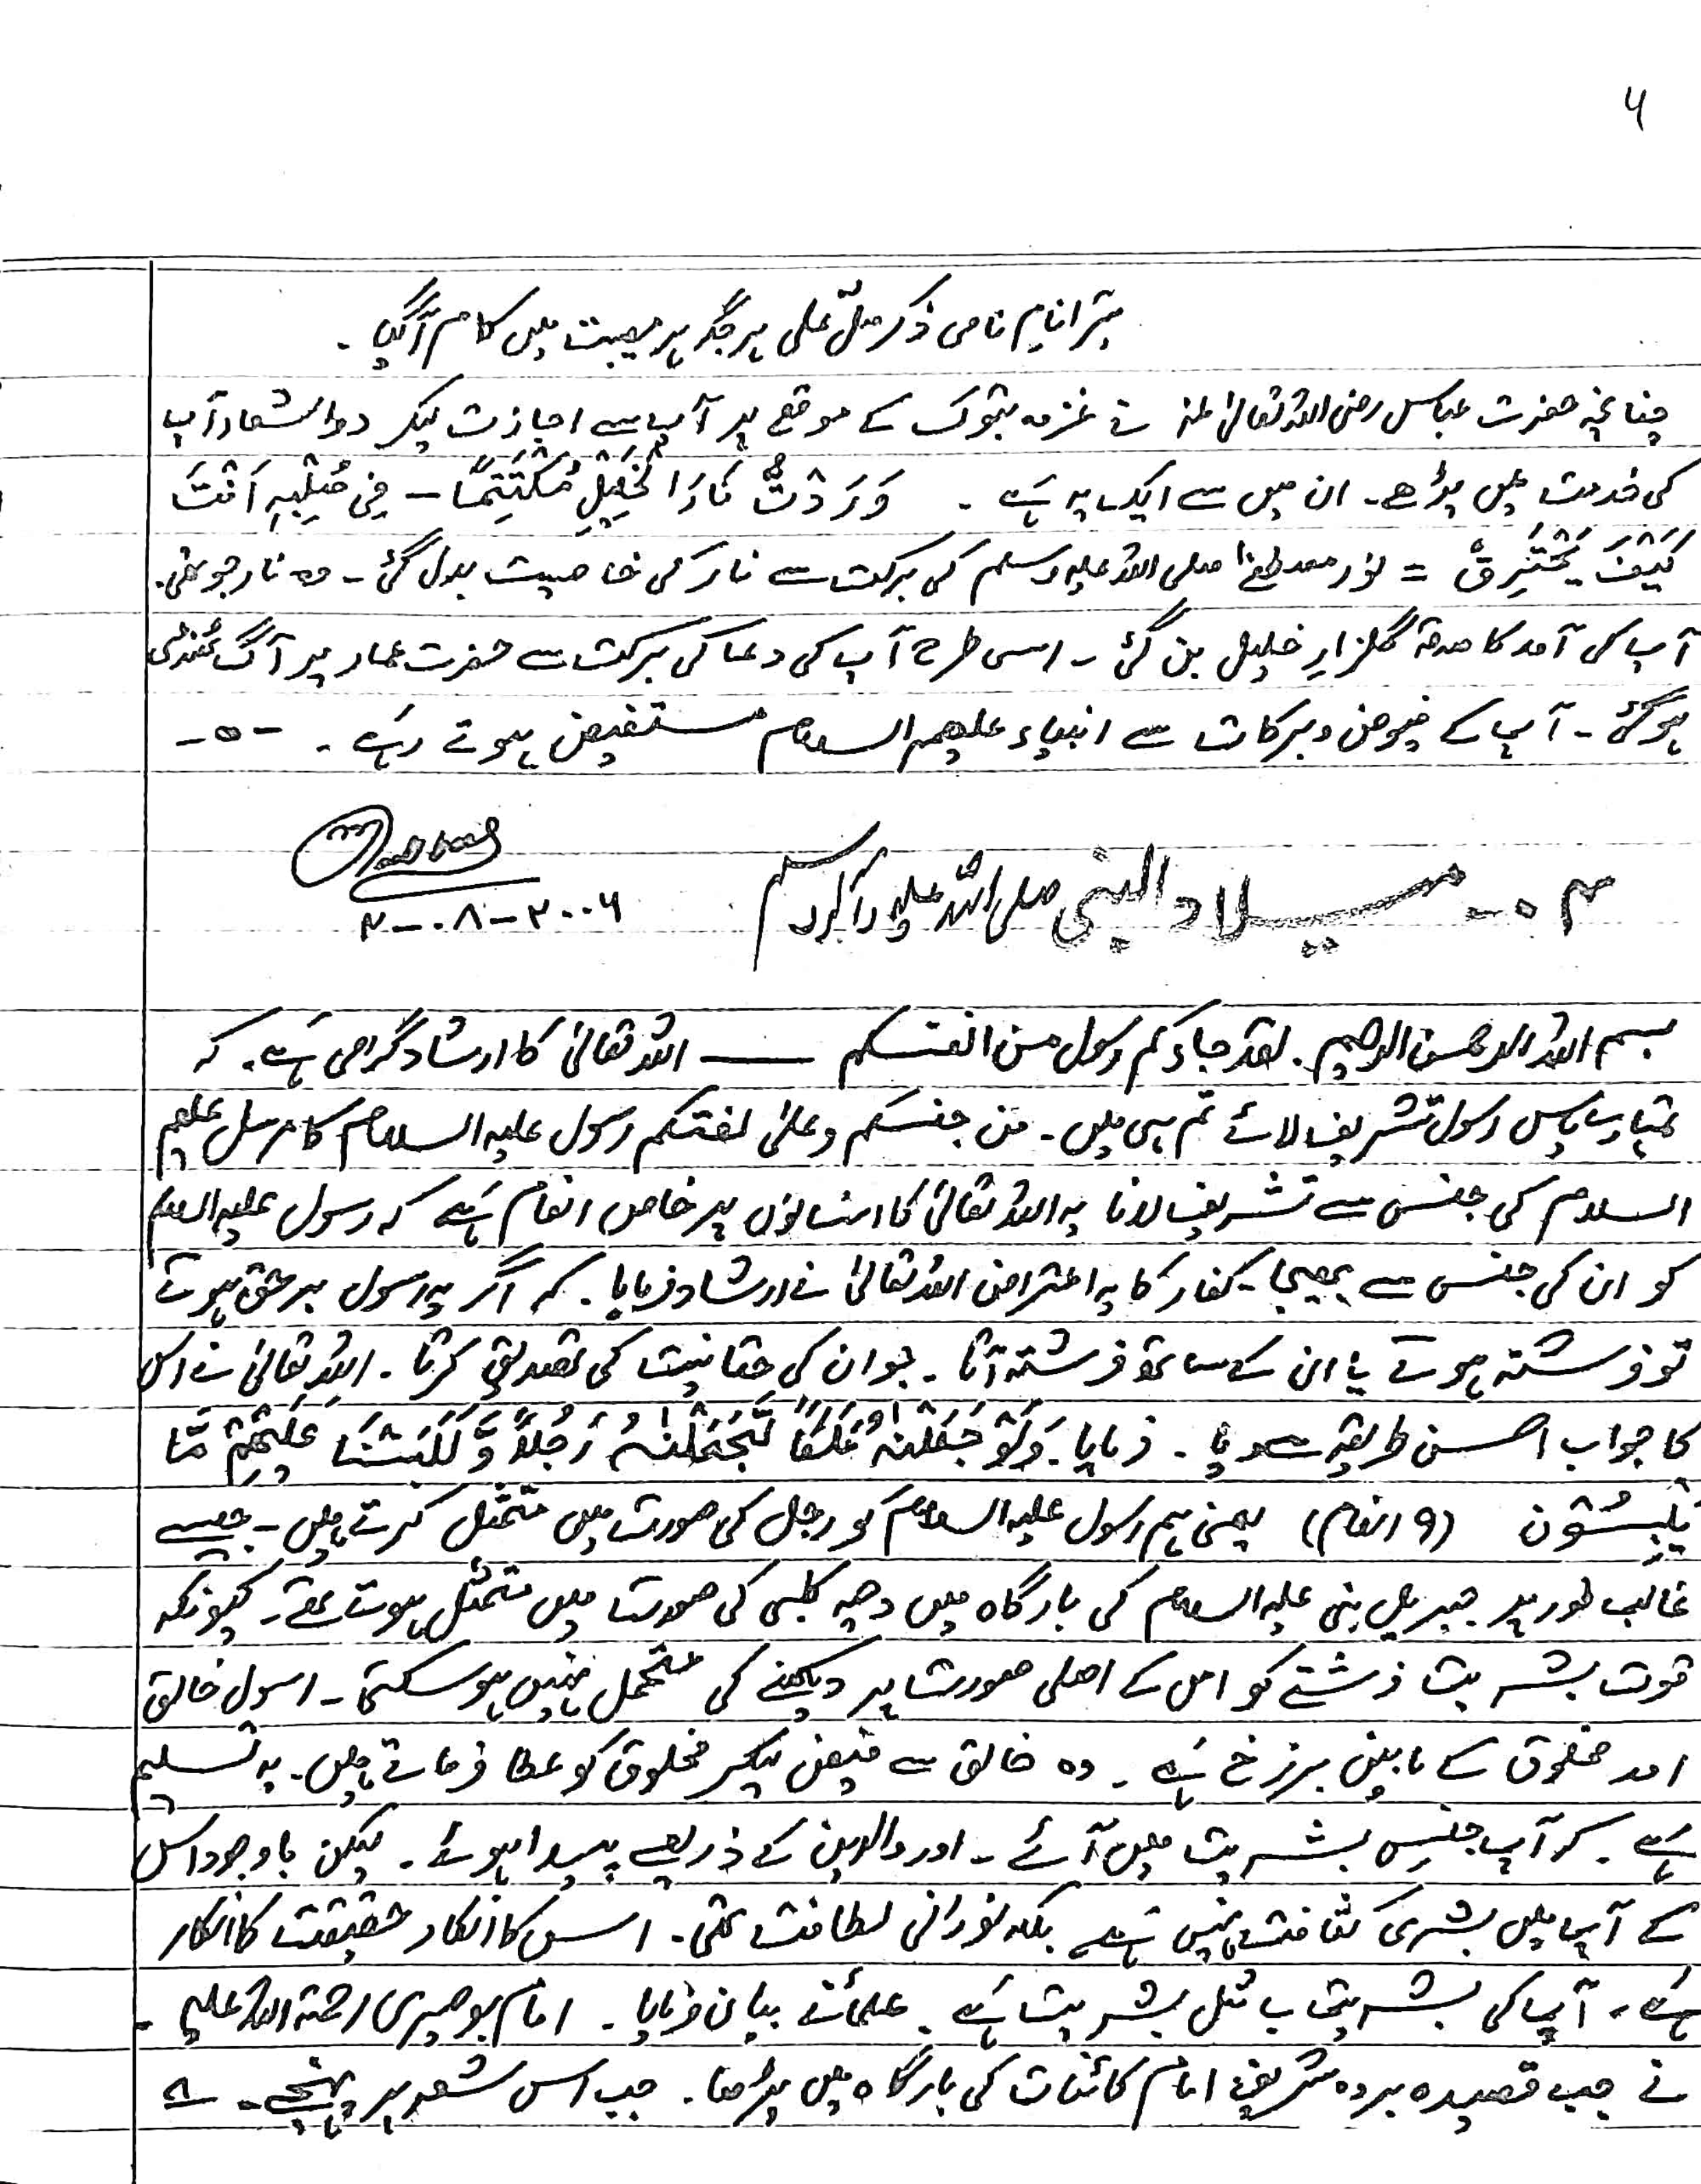 ۶
تیرا نام نامی ذکر صلِّ علی ہر جگہ ہر مصیبت میں کام آگیا ۔
چنانچہ حضرت عباس رضی اللہ تعالیٰ عنہ نے غزوہ تبوک کے موقع پر آپ سے اجازت لیکر دو اشعار آپ
کی خدمت میں پڑھے ۔ ان میں سے ایک یہ ہے ۔ وَرَدْتَّ نَارَ الْخَلِیْلِ مُکْتَتِمًا – فِی صُلْبِہٖ اَنْتَ
کَیْفَ یَحْتَرِقُ = نور مصطفےٰ صلی اللہ علیہ وسلم کی برکت سے نار کی خاصیت بدل گئی ۔ وہ نار جو تھی۔
آپ کی آمد کا صدقہ گلزارِ خلیل بن گئی ۔ اسی طرح آپ کی دعا کی برکت سے حضرت عمار پر آگ ٹھنڈی
ہو گئی ۔ آپ کے فیوض و برکات سے انبیاء علیہم السلام مستفیض ہوتے رہے ۔ -۰-
۴ ۔ میلاد النبی صلی اللہ علیہ وآلہ وسلم
۲–۰۸–۲۰۰۶
بسم اللہ الرحمن الرحیم ۔ لقد جاءکم رسول من انفسکم ـــــ اللہ تعالیٰ کا ارشاد گرامی ہے ۔ کہ
تمہارے پاس رسول تشریف لائے تم ہی میں ۔ من جنسکم وعلیٰ لغتکم رسول علیہ السلام کا مرسل علیہم
السلام کی جنس سے تشریف لانا یہ اللہ تعالیٰ کا انسانوں پر خاص انعام ہے کہ رسول علیہ السلام
کو ان کی جنس سے بھیجا ۔ کفار کا یہ اعتراض اللہ تعالیٰ نے ارشاد فرمایا ۔ کہ اگر یہ رسول برحق ہوتے
تو فرشتہ ہوتے یا ان کے ساتھ فرشتہ آتا ۔ جو ان کی حقانیت کی تصدیق کرتا ۔ اللہ تعالیٰ نے اس
کا جواب احسن طریقہ سے دیا ۔ فرمایا ۔ وَلَوْ جَعَلْنٰہُ مَلَکًا لَّجَعَلْنٰہُ رَجُلًا وَّ لَلَبَسْنَا عَلَیْہِمْ مَّا
یَلْبِسُوْن (۹ انعام) یعنی ہم رسول علیہ السلام کو رجل کی صورت میں متمثل کرتے ہیں ۔ جیسے
غالب طور پر جبریل نبی علیہ السلام کی بارگاہ میں دحیہ کلبی کی صورت میں متمثل ہوتے تھے ۔ کیونکہ
قوت بشریت فرشتے کو اس کے اصلی صورت پر دیکھنے کی متحمل نہیں ہو سکتی ۔ رسول خالق
اور مخلوق کے مابین برزخ ہے ۔ وہ خالق سے فیض لیکر مخلوق کو عطا فرماتے ہیں ۔ یہ تسلیم
ہے ۔ کہ آپ جنسِ بشریت میں آئے ۔ اور والدین کے ذریعے پیدا ہوئے ۔ لیکن باوجود اس
کے آپ میں بشری کثافت نہیں ہے بلکہ نورانی لطافت تھی ۔ اس کا انکار حقیقت کا انکار
ہے ۔ آپ کی بشریت بے مثل بشریت ہے ۔ علمائے بیان فرمایا ۔ امام بوصیری رحمۃ اللہ علیہ ۔
نے جب قصیدہ بردہ شریف امام کائنات کی بارگاہ میں پڑھا ۔ جب اس شعر پر پہنچے ۔